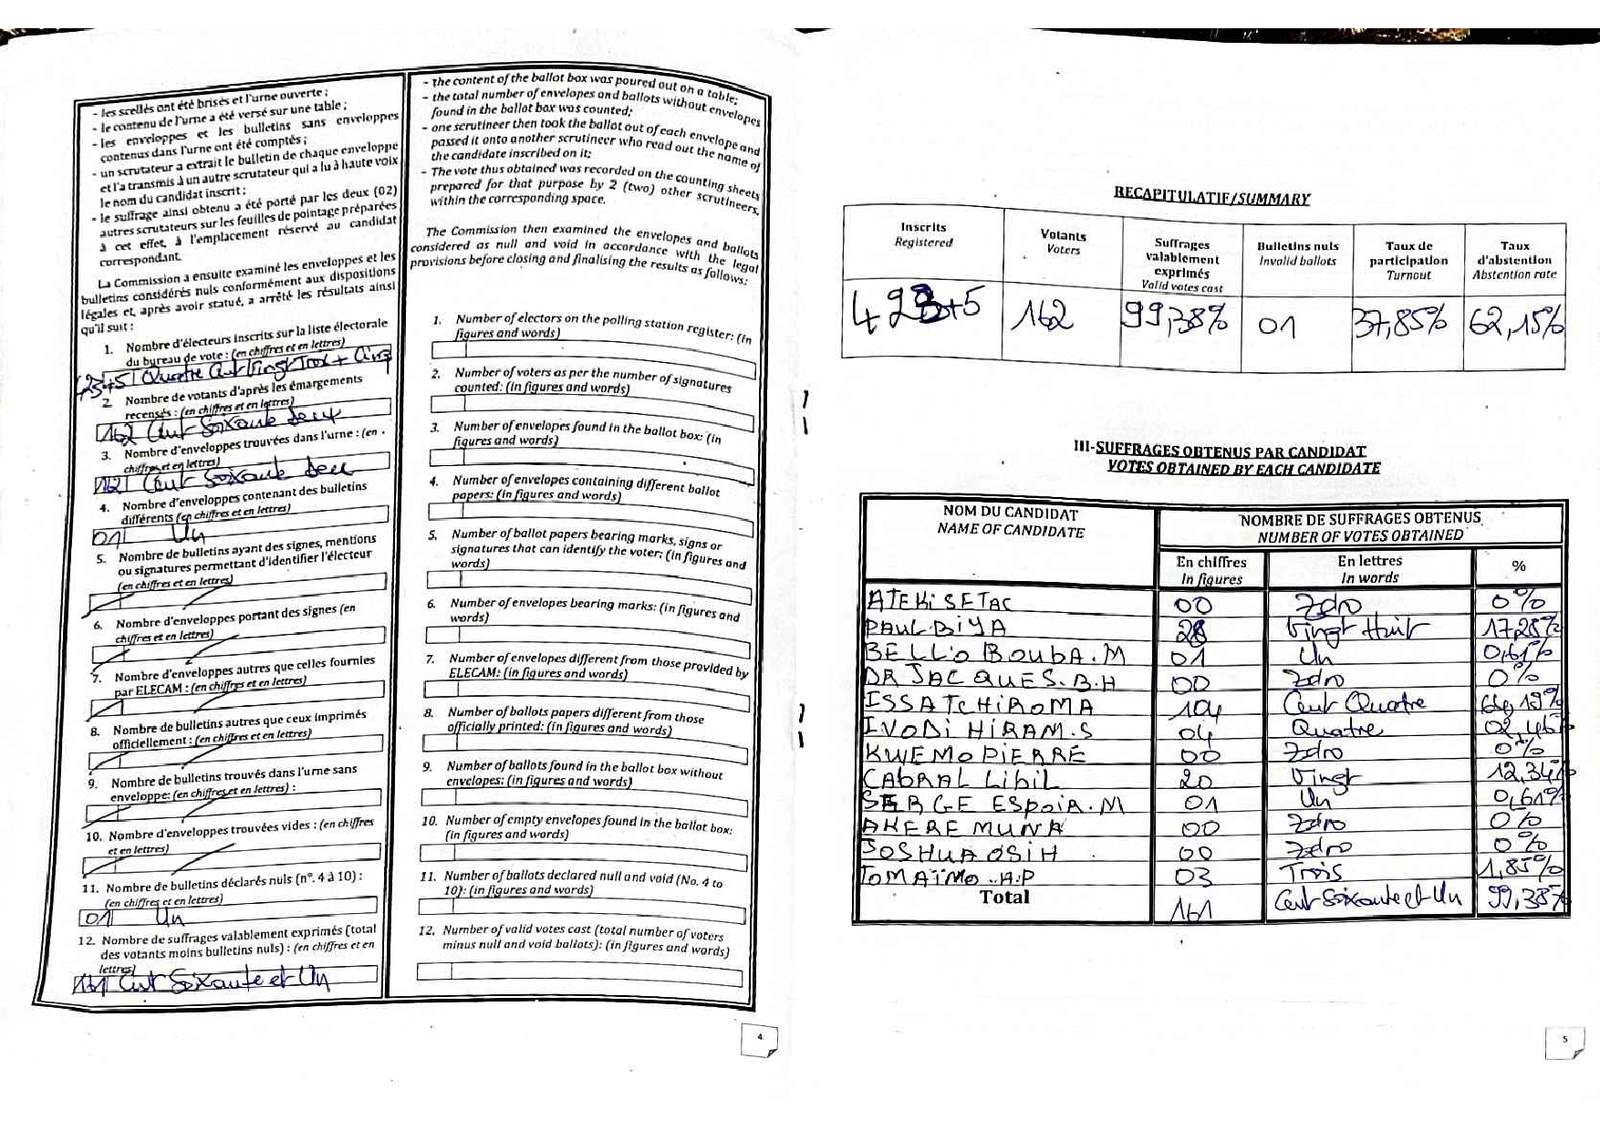 - les scellés ont été brisés et l'urne ouverte ;
- le contenu de l'urne a été versé sur une table ;
- les enveloppes et les bulletins sans enveloppes
contenus dans l'urne ont été comptés ;
- un scrutateur a extrait le bulletin de chaque enveloppe
et l'a transmis à un autre scrutateur qui a lu à haute voix
le nom du candidat inscrit ;
- le suffrage ainsi obtenu a été porté par les deux (02)
autres scrutateurs sur les feuilles de pointage préparées
à cet effet, à l'emplacement réservé au candidat
correspondant.
La Commission a ensuite examiné les enveloppes et les
bulletins considérés nuls conformément aux dispositions
légales et, après avoir statué, a arrêté les résultats ainsi
qu'il suit :
1. Nombre d'électeurs inscrits sur la liste électorale
du bureau de vote : (en chiffres et en lettres)
Quatre Cent Vingt Trois + Cinq
2. Nombre de votants d'après les émargements
recensés : (en chiffres et en lettres)
162 Cent Soixante deux
3. Nombre d'enveloppes trouvées dans l'urne : (en
chiffres et en lettres)
162 Cent Soixante deux
4. Nombre d'enveloppes contenant des bulletins
différents (en chiffres et en lettres)
01 Un
5. Nombre de bulletins ayant des signes, mentions
ou signatures permettant d'identifier l'électeur
(en chiffres et en lettres)
6. Nombre d'enveloppes portant des signes (en
chiffres et en lettres)
7. Nombre d'enveloppes autres que celles fournies
par ELECAM : (en chiffres et en lettres)
8. Nombre de bulletins autres que ceux imprimés
officiellement : (en chiffres et en lettres)
9. Nombre de bulletins trouvés dans l'urne sans
enveloppe: (en chiffres et en lettres) :
10. Nombre d'enveloppes trouvées vides : (en chiffres
et en lettres)
11. Nombre de bulletins déclarés nuls (n°. 4 à 10) :
(en chiffres et en lettres)
01 Un
12. Nombre de suffrages valablement exprimés (total
des votants moins bulletins nuls) : (en chiffres et en
lettres)
161 Cent Soixante et Un
- the content of the ballot box was poured out on a table;
- the total number of envelopes and ballots without envelopes
found in the ballot box was counted;
- one scrutineer then took the ballot out of each envelope and
passed it onto another scrutineer who read out the name of
the candidate inscribed on it;
- The vote thus obtained was recorded on the counting sheets
prepared for that purpose by 2 (two) other scrutineers,
within the corresponding space.
The Commission then examined the envelopes and ballots
considered as null and void in accordance with the legal
provisions before closing and finalising the results as follows:
1. Number of electors on the polling station register: (in
figures and words)
2. Number of voters as per the number of signatures
counted: (in figures and words)
3. Number of envelopes found in the ballot box: (in
figures and words)
4. Number of envelopes containing different ballot
papers: (in figures and words)
5. Number of ballot papers bearing marks, signs or
signatures that can identify the voter: (in figures and
words)
6. Number of envelopes bearing marks: (in figures and
words)
7. Number of envelopes different from those provided by
ELECAM: (in figures and words)
8. Number of ballots papers different from those
officially printed: (in figures and words)
9. Number of ballots found in the ballot box without
envelopes: (in figures and words)
10. Number of empty envelopes found in the ballot box:
(in figures and words)
11. Number of ballots declared null and void (No. 4 to
10): (in figures and words)
12. Number of valid votes cast (total number of voters
minus null and void ballots): (in figures and words)
4
RECAPITULATIF/SUMMARY
Inscrits Registered Votants Voters Suffrages valablement exprimés Valid votes cast Bulletins nuls Invalid ballots Taux de participation Turnout Taux d'abstention Abstention rate
423+5 162 99,38% 01 37,85% 62,15%
III-SUFFRAGES OBTENUS PAR CANDIDAT
VOTES OBTAINED BY EACH CANDIDATE
NOM DU CANDIDAT NOMBRE DE SUFFRAGES OBTENUS
NAME OF CANDIDATE NUMBER OF VOTES OBTAINED
En chiffres En lettres %
In figures In words
ATEKI SETAC 00 Zéro 0%
PAUL BIYA 28 Vingt Huit 17,28%
BELLO BOUBA.M 01 Un 0,61%
DR JACQUES.B.H 00 Zéro 0%
ISSA TCHIROMA 104 Cent Quatre 64,19%
IVODI HIRAM.S 04 Quatre 02,46%
KWEMO PIERRE 00 Zéro 0%
CABRAL LIBIL 20 Vingt 12,34%
SERGE ESPOIR.M 01 Un 0,61%
AKERE MUNA 00 Zéro 0%
JOSHUA OSIH 00 Zéro 0%
TOMAÏNO.H.P 03 Trois 1,85%
Total 161 Cent Soixante et Un 99,38%
5